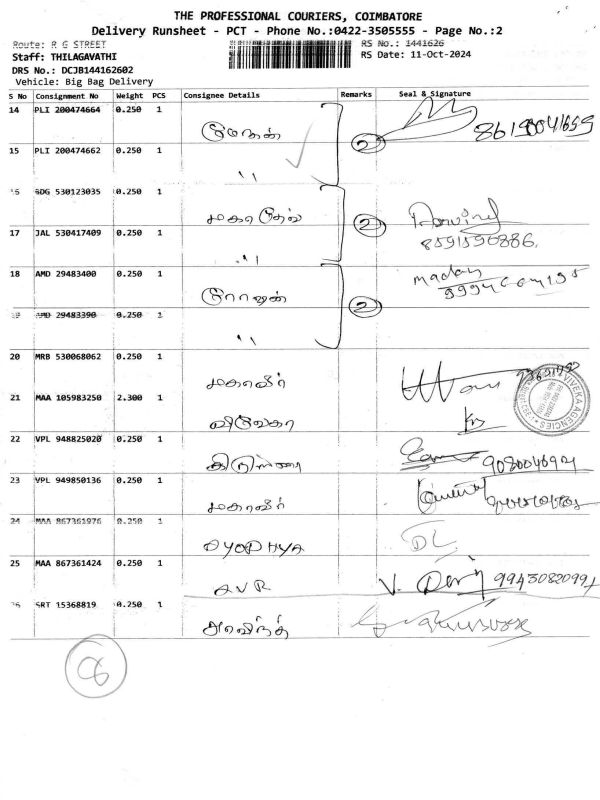 THE PROFESSIONAL COURIERS, COIMBATORE
Delivery Runsheet - PCT - Phone No.:0422-3505555 - Page No.:2
Route: R G STREET
RS No.: 1441626
Staff: THILAGAVATHI
RS Date: 11-Oct-2024
DRS No.: DCJB144162602
Vehicle: Big Bag Delivery
S No Consignment No Weight PCS Consignee Details Remarks Seal & Signature
14 PLI 200474664 0.250 1 2 86198041659
15 PLI 200474662 0.250 1 "
16 GDG 530123035 0.250 1 2
17 JAL 530417409 0.250 1 " 8591590886.
18 AMD 29483400 0.250 1 ரோஷன் 2 madan
19 AMD 29483390 0.250 1 "
20 MRB 530068062 0.250 1 மகாவீர்
21 MAA 105983250 2.300 1 விவேகா VIVEKA AGENCIES
22 VPL 948825020 0.250 1
23 VPL 949850136 0.250 1 மகாவீர்
24 MAA 867361976 0.250 1 AYODHYA DL
25 MAA 867361424 0.250 1 AVR 9943082099
26 SRT 15368819 0.250 1 அரவிந்த்
8